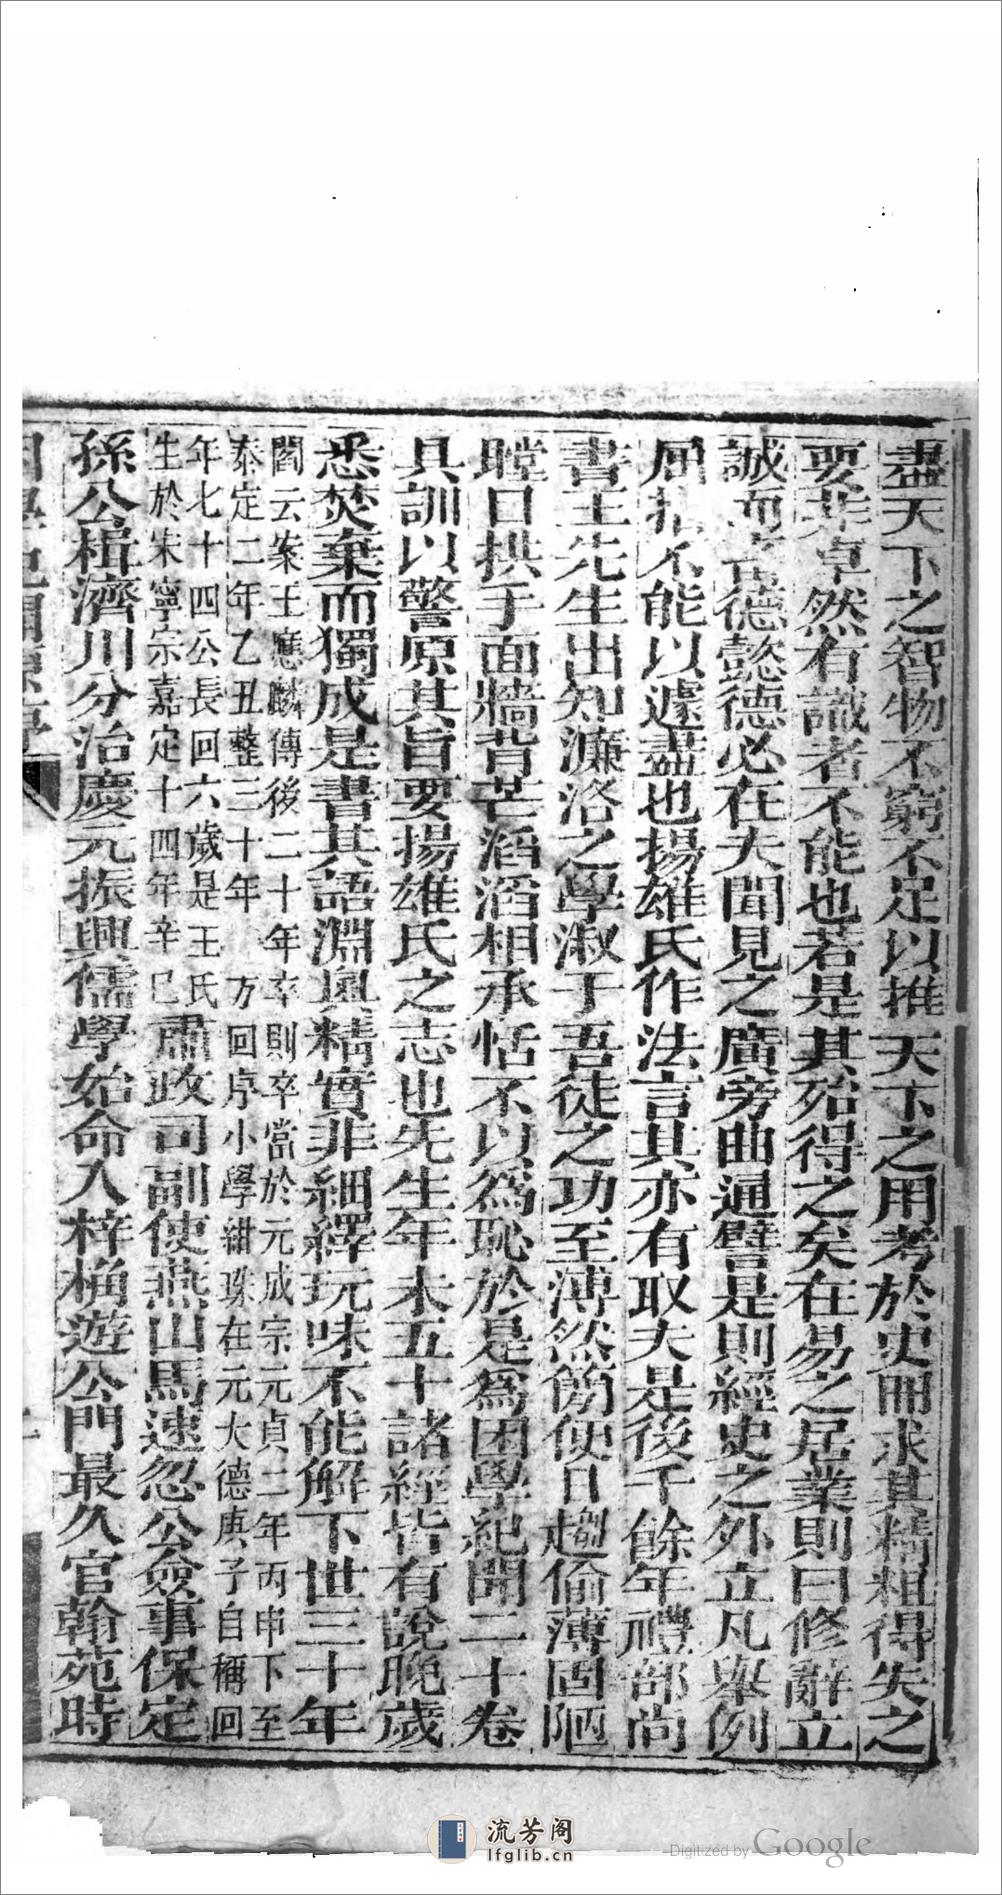 盡天下之智物不窮不足以推天下之用考於史冊求其精粗得失之
要非卓然有識者不能也若是其殆得之矣在易之居業則曰修辭立
誠而畜德懿德必在夫聞見之廣旁曲通譬是則經史之外立凡舉例
屈指不能以遽盡也揚雄氏作法言其亦有取夫是後千餘年禮部尚
書王先生出知濂洛之學淑于吾徒之功至溥然簡便日趨偷薄固陋
瞠目拱手面牆背芒滔滔相承恬不以為恥於是為困學紀聞二十卷
具訓以警原其旨要揚雄氏之志也先生年未五十諸經皆有說晚歲
悉焚棄而獨成是書其語淵奧精實非紬繹玩味不能解下世三十年
閻云案王應麟傳後二十年卒則卒當於元成宗元貞二年丙申下至
泰定二年乙丑整三十年 方回序小學紺珠在元大德庚子自稱回
年七十四公長回六歲是王氏
生於宋寧宗嘉定十四年辛巳
肅政司副使燕山馬速忽公僉事保定
孫公楫濟川分治慶元振興儒學始命入梓桷遊公門最久官翰苑時
流芳阁
lfglib.cn
Digitized by Google